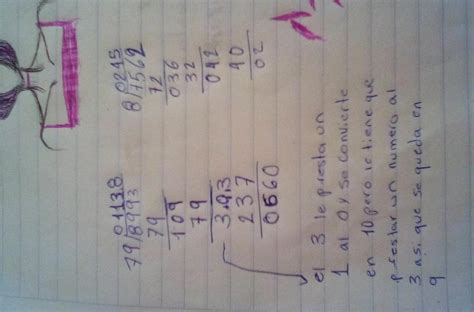 01138
79/8993
79
109
79
3.9.3
237
0660
8/7562
72
036
32
042
40
02
el 3 le presta un
1 al 0 y se convierte
en 10 pero le tiene que
prestar un numero al
3 asi que se queda en
9